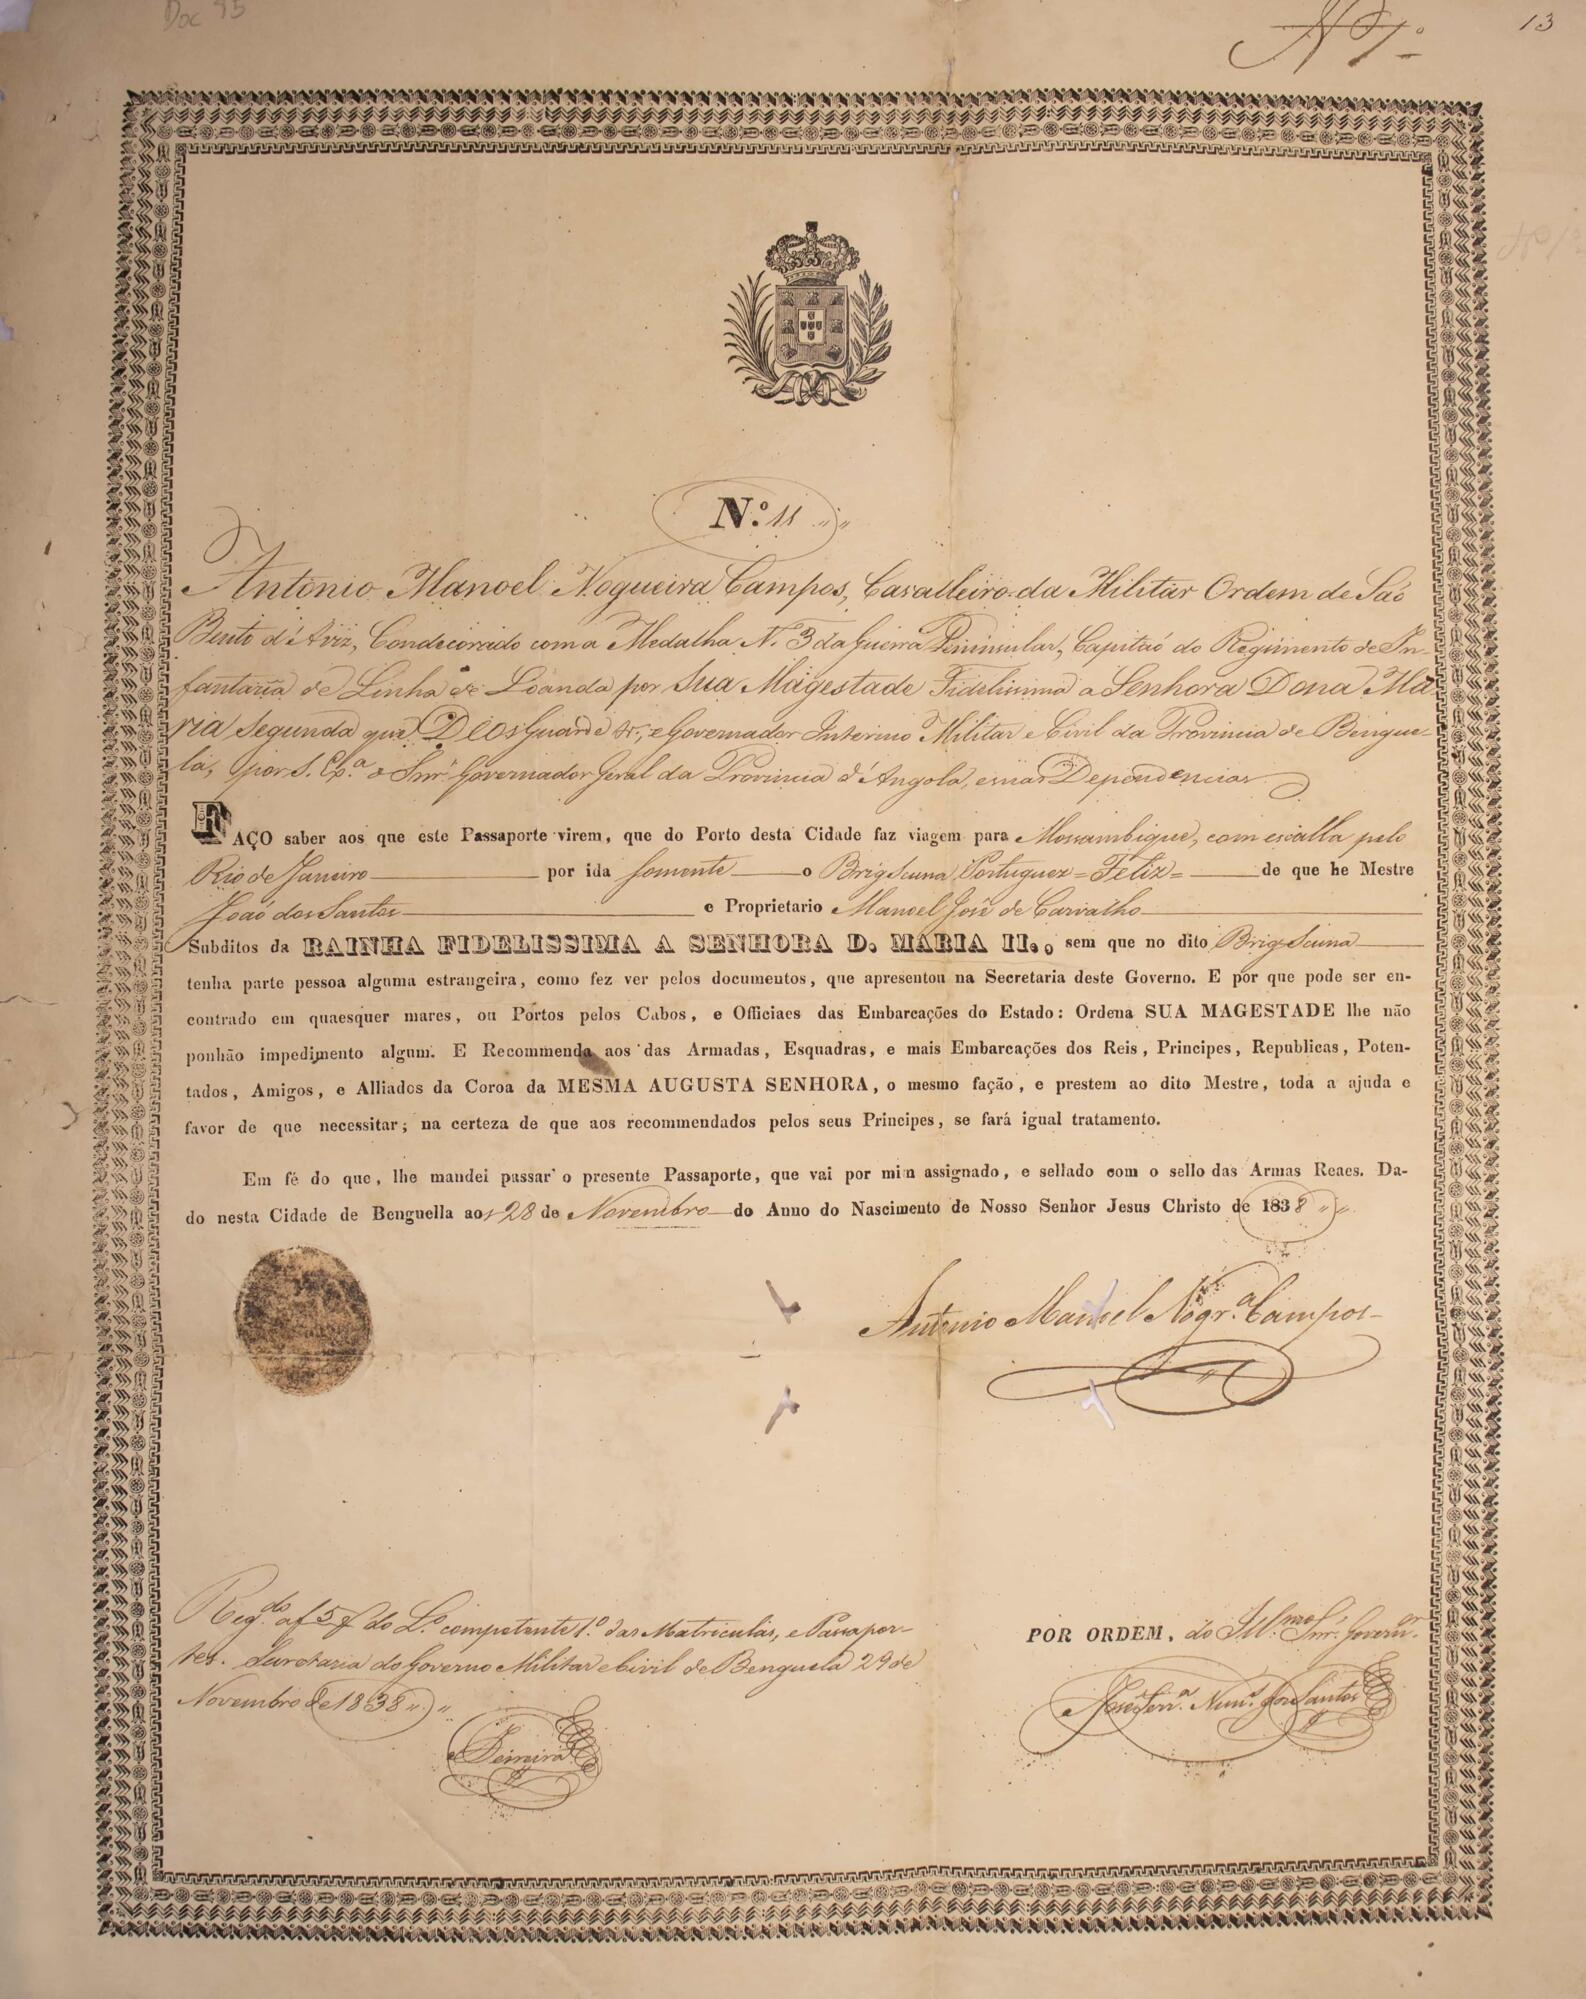 Doc 95
Nº 1º
13
N.º 11
Antonio Manoel Nogueira Campos, Cavalleiro da Militar Ordem de Saõ
Bento d'Aviz, Condecorado com a Medalha N. 3 da Guerra Peninsular, Capitaõ do Regimento de In-
fantaria de Linha de Loanda por Sua Magestade Fidelissima a Senhora Dona Ma-
ria Segunda que Deos Guarde &., e Governador Interino Militar e Civil da Provincia de Bengue-
la, por S. Exª. o Snr. Governador Geral da Provincia d'Angola, e suas Dependencias.
FAÇO saber aos que este Passaporte virem, que do Porto desta Cidade faz viagem para Mossambique, com escalla pelo
Rio de Janeiro por ida somente o Brig Scuna Portuguez = Feliz = de que he Mestre
Joaõ dos Santos e Proprietario Manoel José de Carvalho
Subditos da RAINHA FIDELISSIMA A SENHORA D. MARIA II., sem que no dito Brig Scuna
tenha parte pessoa alguma estrangeira, como fez ver pelos documentos, que apresentou na Secretaria deste Governo. E por que pode ser en-
contrado em quaesquer mares, ou Portos pelos Cabos, e Officiaes das Embarcações do Estado: Ordena SUA MAGESTADE lhe não
ponhão impedimento algum. E Recommenda aos das Armadas, Esquadras, e mais Embarcações dos Reis, Principes, Republicas, Poten-
tados, Amigos, e Alliados da Coroa da MESMA AUGUSTA SENHORA, o mesmo fação, e prestem ao dito Mestre, toda a ajuda e
favor de que necessitar; na certeza de que aos recommendados pelos seus Principes, se fará igual tratamento.
Em fé do que, lhe mandei passar o presente Passaporte, que vai por min assignado, e sellado com o sello das Armas Reaes. Da-
do nesta Cidade de Benguella aos 28 de Novembro do Anno do Nascimento de Nosso Senhor Jesus Christo de 1838
Antonio Manoel Nogr.ª Campos
Reg.do a f 5 do L.º competente 1.º das Matriculas, e Passapor-
tes. Secretaria do Governo Militar e Civil de Benguela 29 de
Novembro de 1838
Ferreira
POR ORDEM, do Ill.mo Snr. Govern.or
José Ferr.ª Nun.s dos Santos